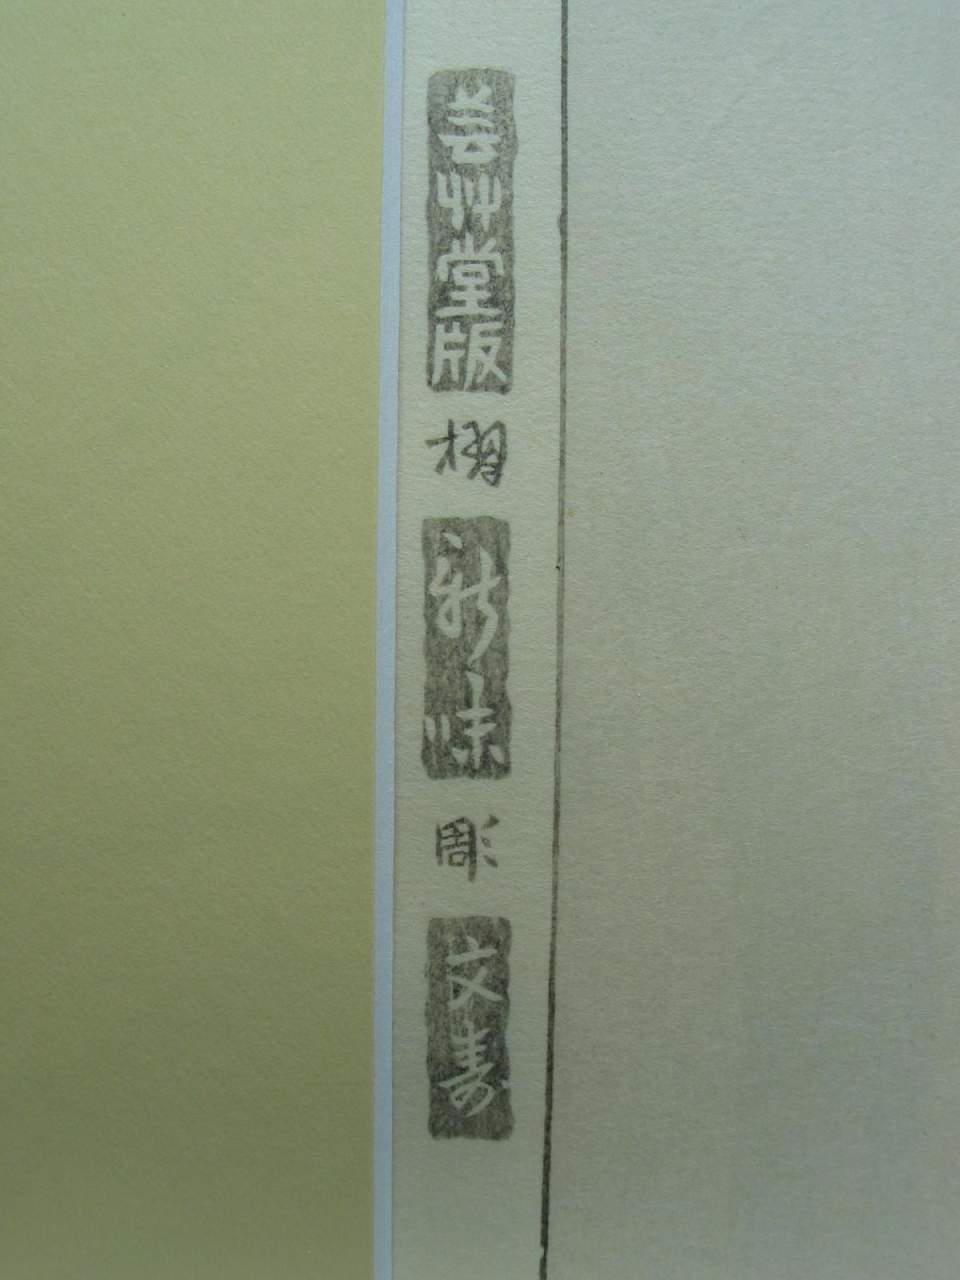 芸艸堂版
摺
新味
彫
文寿